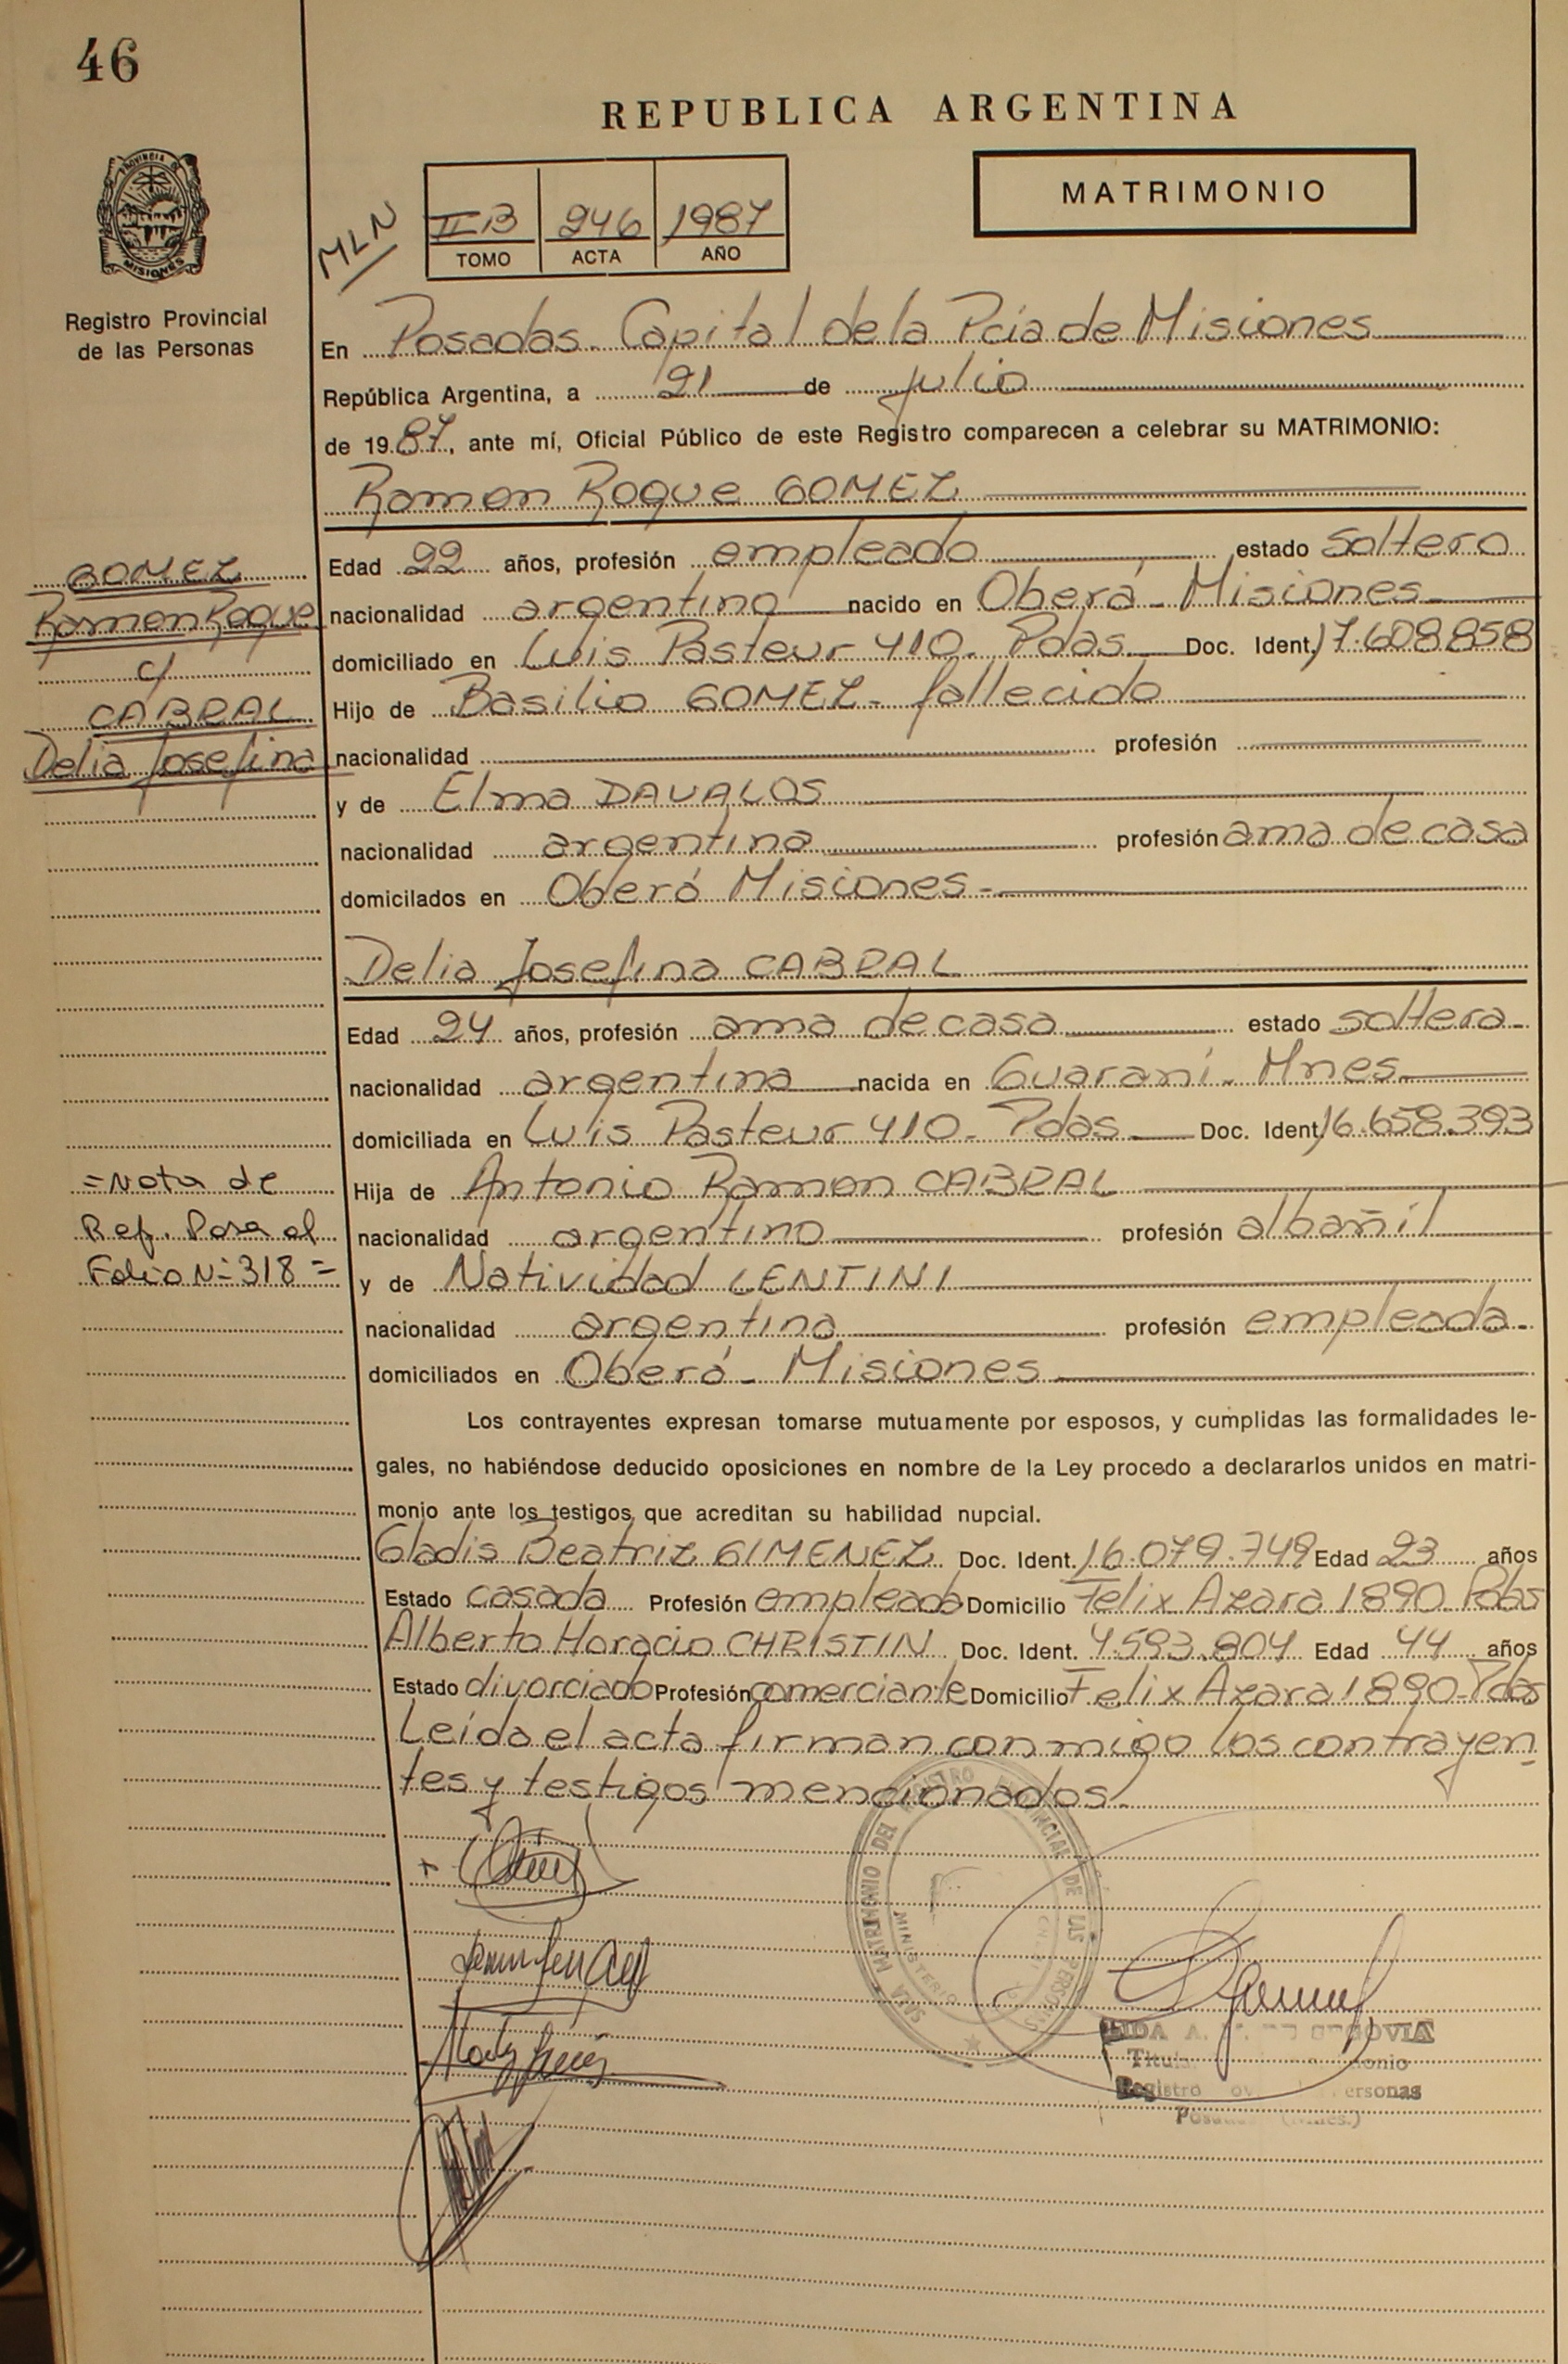 46
REPUBLICA ARGENTINA
MATRIMONIO
PROVINCIA DE
MISIONES
Registro Provincial
de las Personas
MLN
II-B 246 1987
TOMO ACTA AÑO
En Posadas. Capital de la Pcia de Misiones
República Argentina, a 21 de julio
de 1987, ante mí, Oficial Público de este Registro comparecen a celebrar su MATRIMONIO:
Ramon Roque GOMEZ
Edad 22 años, profesión empleado estado soltero
nacionalidad argentino nacido en Oberá - Misiones
domiciliado en Luis Pasteur 410. Pdas Doc. Ident. 17.608.858
Hijo de Basilio GOMEZ - fallecido
nacionalidad profesión
y de Elma DAVALOS
nacionalidad argentina profesión ama de casa
domicilados en Oberá Misiones -
GOMEZ
Ramon Roque
c/
CABRAL
Delia Josefina
Delia Josefina CABRAL
Edad 24 años, profesión ama de casa estado soltera
nacionalidad argentina nacida en Guaraní. Mnes
domiciliada en Luis Pasteur 410. Pdas Doc. Ident. 16.658.393
Hija de Antonio Ramon CABRAL
nacionalidad argentino profesión albañil
y de Natividad LENTINI
nacionalidad argentina profesión empleada
domiciliados en Oberá - Misiones
= Nota de
Ref. Pasa al
Folio Nº 318 =
Los contrayentes expresan tomarse mutuamente por esposos, y cumplidas las formalidades le-
gales, no habiéndose deducido oposiciones en nombre de la Ley procedo a declararlos unidos en matri-
monio ante los testigos que acreditan su habilidad nupcial.
Gladis Beatriz GIMENEZ Doc. Ident. 16.079.749 Edad 23 años
Estado casada Profesión empleada Domicilio Felix Azara 1890 Pdas
Alberto Horacio CHRISTIN Doc. Ident. 4.593.804 Edad 44 años
Estado divorciado Profesión comerciante Domicilio Felix Azara 1890 - Pdas
Leída el acta firman conmigo los contrayen-
tes y testigos mencionados.
MATRIMONIO DEL REGISTRO PROVINCIAL DE LAS PERSONAS
MINISTERIO
SEGOVIA
Registro
Personas